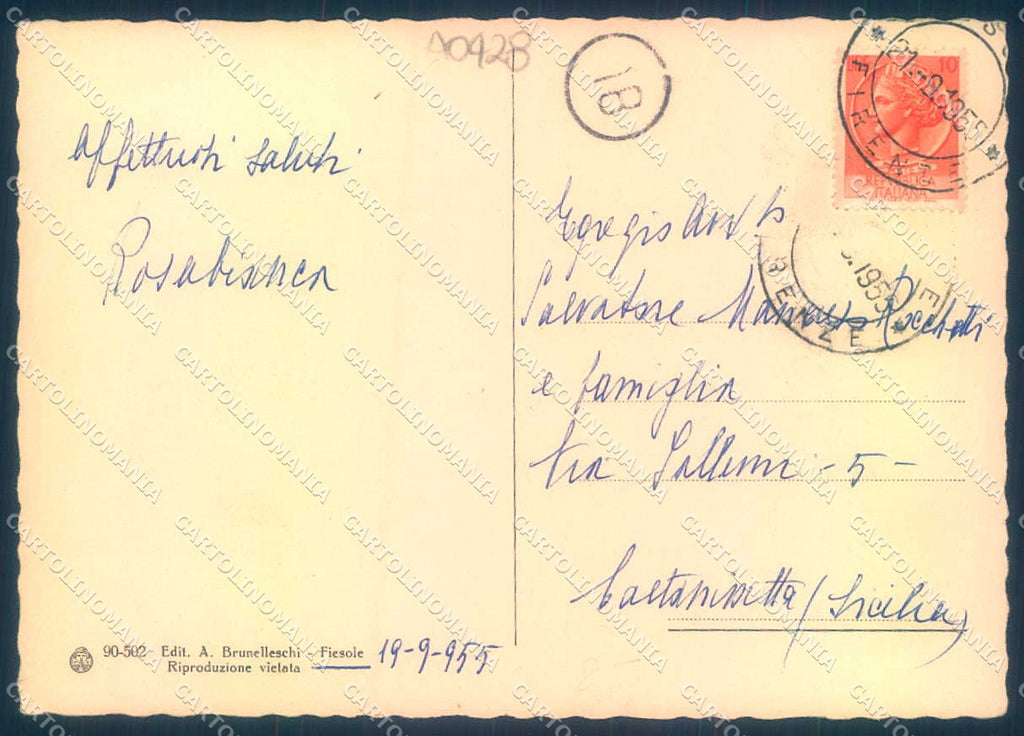 A0428
1B
21-9-1955
FIRENZE
10
REPUBBLICA
ITALIANA
Affettuosi saluti
Rosabianca
Egregio Avv.
Salvatore Rocchetti
e famiglia
Via - 5 -
Caltanissetta (Sicilia)
1955
FIRENZE
90-502 - Edit. A. Brunelleschi - Fiesole
Riproduzione vietata
19-9-955
CARTOLINOMANIA